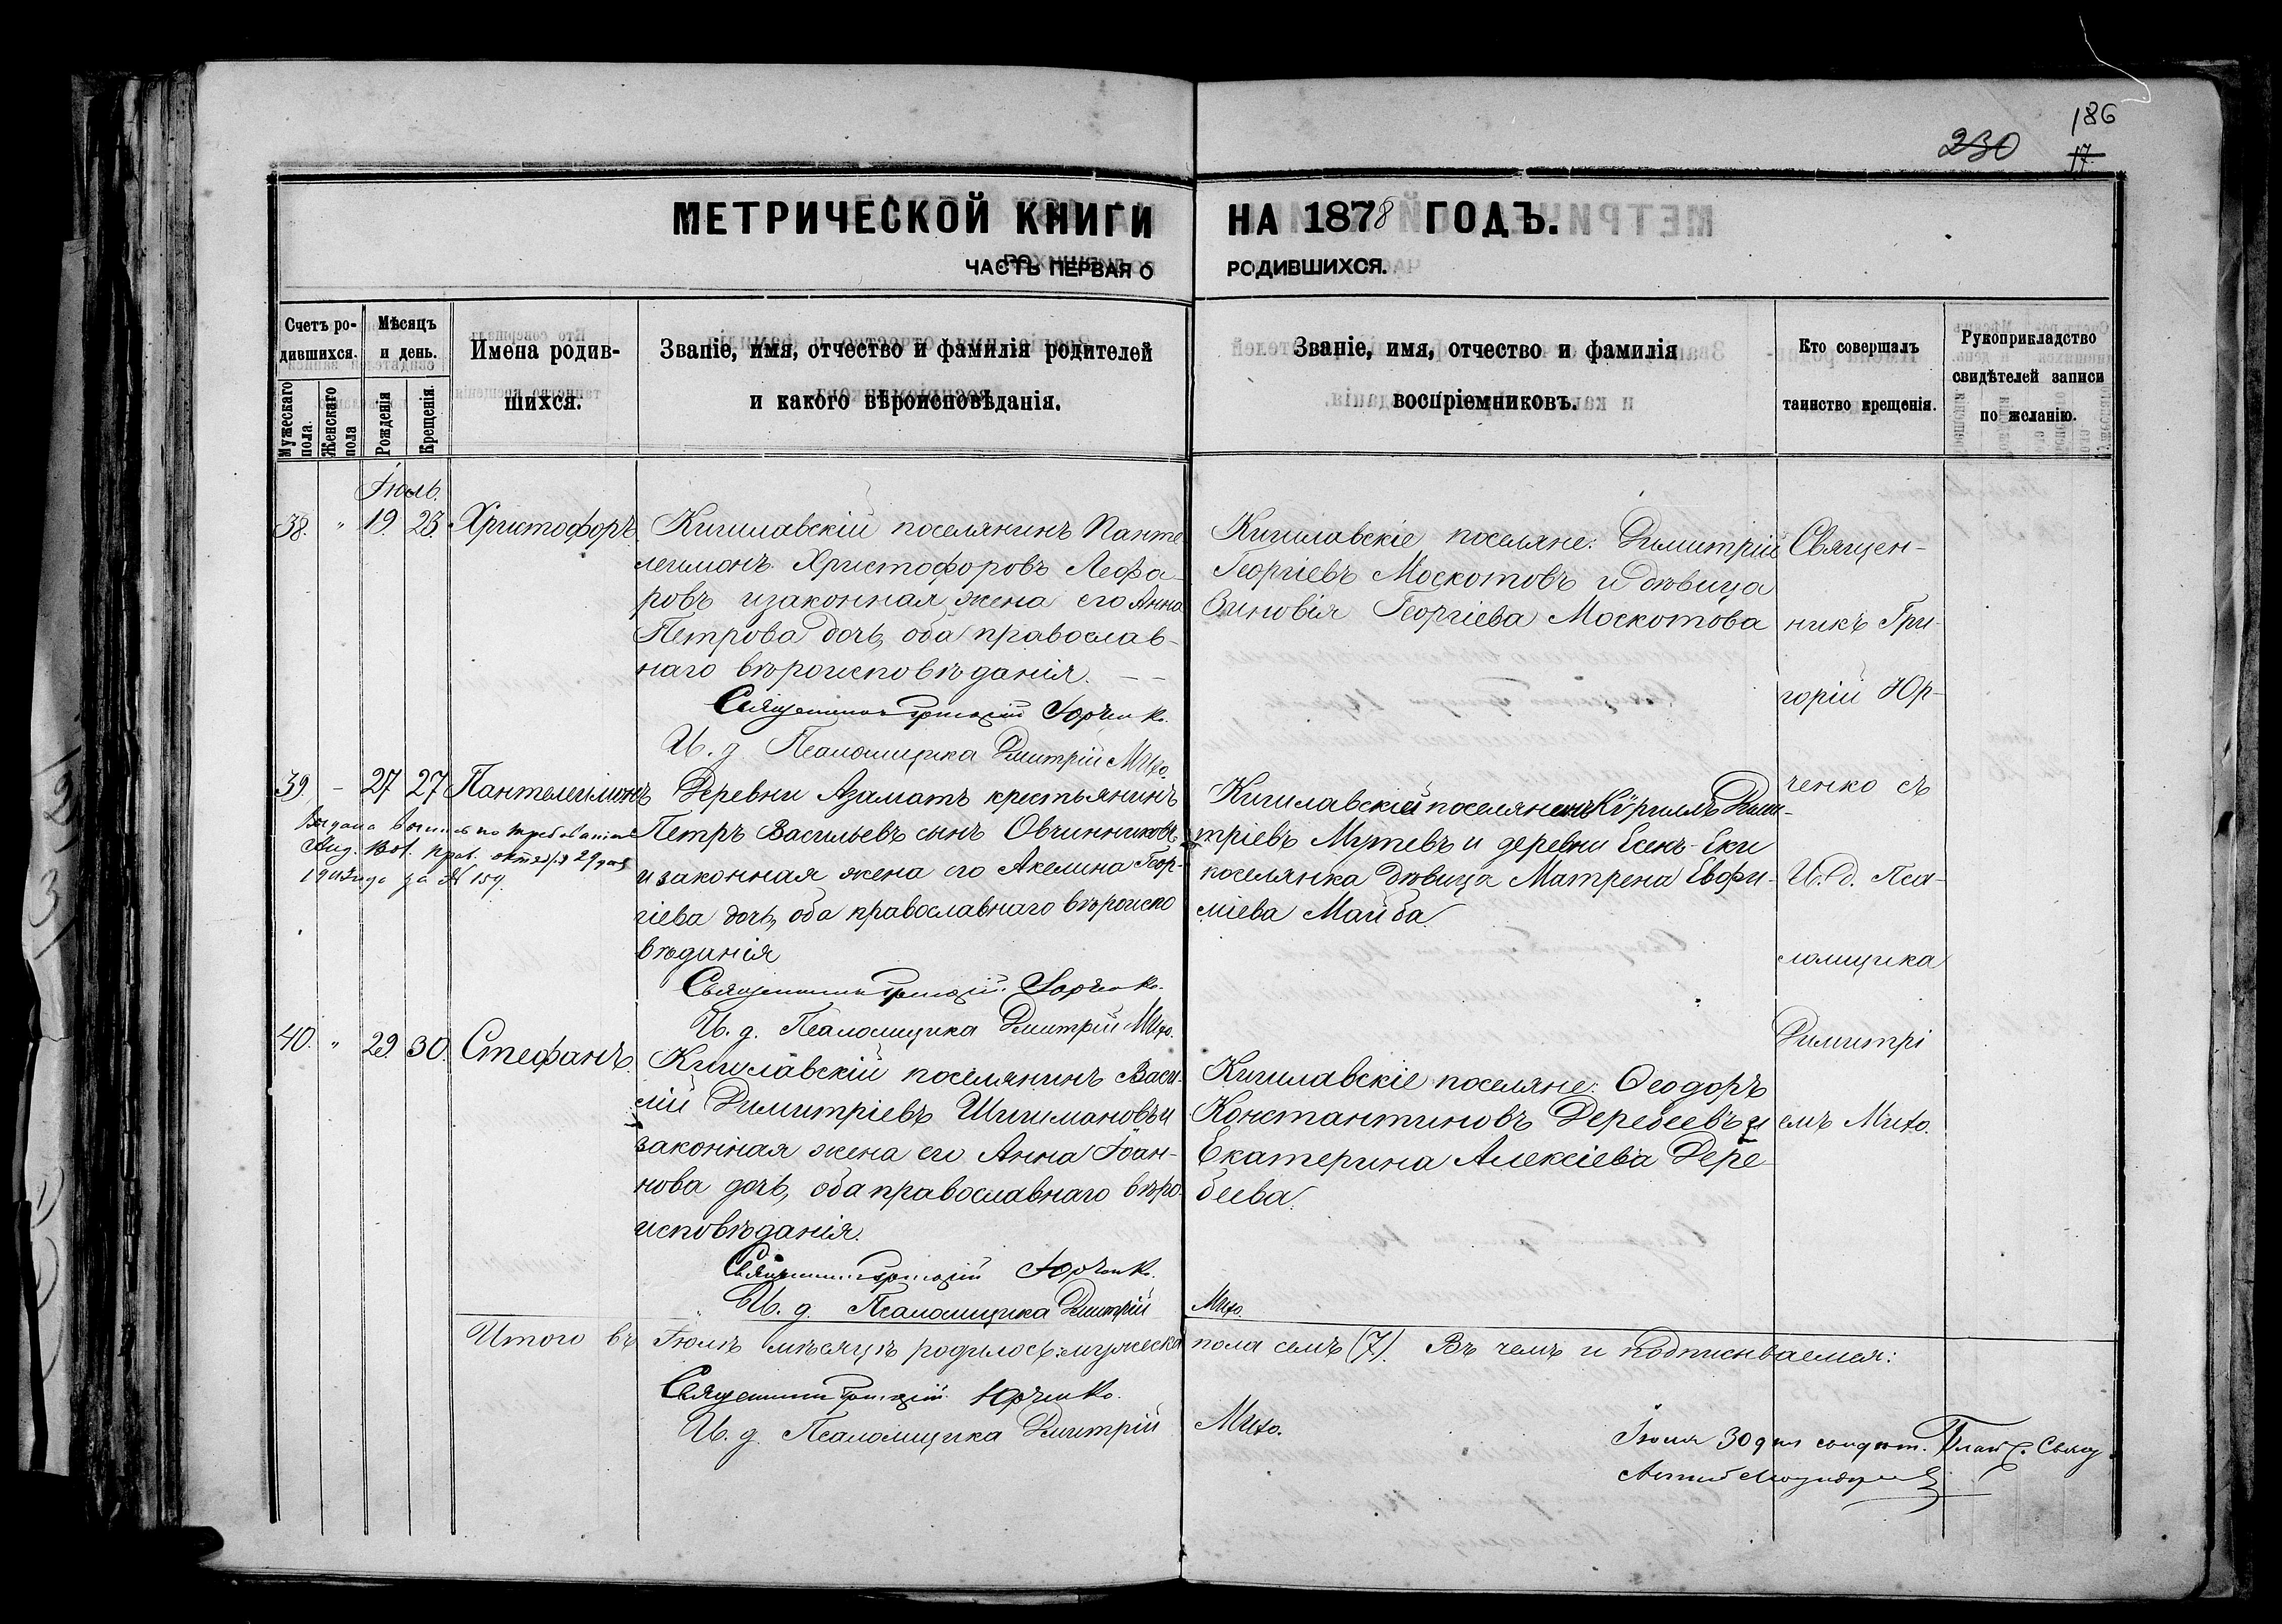 230
186
17.
МЕТРИЧЕСКОЙ КНИГИ НА 1878 ГОДЪ.
ЧАСТЬ ПЕРВАЯ О РОДИВШИХСЯ.
Счетъ ро-
дившихся.
Мужескаго пола.
Женскаго пола
Мѣсяцъ
и день.
Рожденія
Крещенія.
Имена родив-
шихся.
Званіе, имя, отчество и фамилія родителей
и какого вѣроисповѣданія.
Званіе, имя, отчество и фамилія
воспріемниковъ.
Кто совершалъ
таинство крещенія.
Рукоприкладство
свидѣтелей записи
по желанію.
Іюль.
38. " 19. 23. Христофоръ
Кишлавскій поселянинъ Панте
леимонъ Христофоровъ Лефа-
ровъ изаконная жена его Анна
Петрова дочь, оба православ-
наго вѣроисповѣданія.
Священникъ Григорій Юрченко.
И. д. Псаломщика Димитрій Михо.
Кишлавскіе поселяне: Димитрій
Георгіевъ Москотовъ и дѣвица
Зиновія Георгіева Москотова
39. - 27 27 Пантелеимонъ
Выдана выпись по требованію
октября 29 дня
за № 159.
Деревни Азаматъ крестьянинъ
Петръ Васильевъ сынъ Овчинниковъ
и законная жена его Акелина Геор-
гіева дочь, оба православнаго вѣроиспо
вѣданія
Священникъ Григорій Юрченко.
И. д. Псаломщика Димитрій Михо.
Кишлавскій поселянинъ Кириллъ Дими-
тріевъ Мутевъ и деревни Есенъ-Еки
поселянка дѣвица Матрена Евфи-
міева Майба
40. " 29. 30. Стефанъ.
Кишлавскій поселянинъ Васи-
лій Димитріевъ Шишмановъ и
законная жена его Анна Іоан-
нова дочь, оба православнаго вѣро-
исповѣданія.
Священникъ Григорій Юрченко.
И. д. Псаломщика Димитрій Михо.
Кишлавскіе поселяне: Ѳеодоръ
Константиновъ Деребеевъ и
Екатерина Алексіева Дере-
беева.
Священ-
никъ Гри-
горій Юр-
ченко съ
И. д. Пса-
ломщика
Димитрі
емъ Михо.
Итого въ Іюлѣ мѣсяцѣ родилось: мужеска пола семь (7). Въ чемъ и подписываемся:
Священникъ Григорій Юрченко.
И. д. Псаломщика Димитрій Михо.
Іюля 30 дня